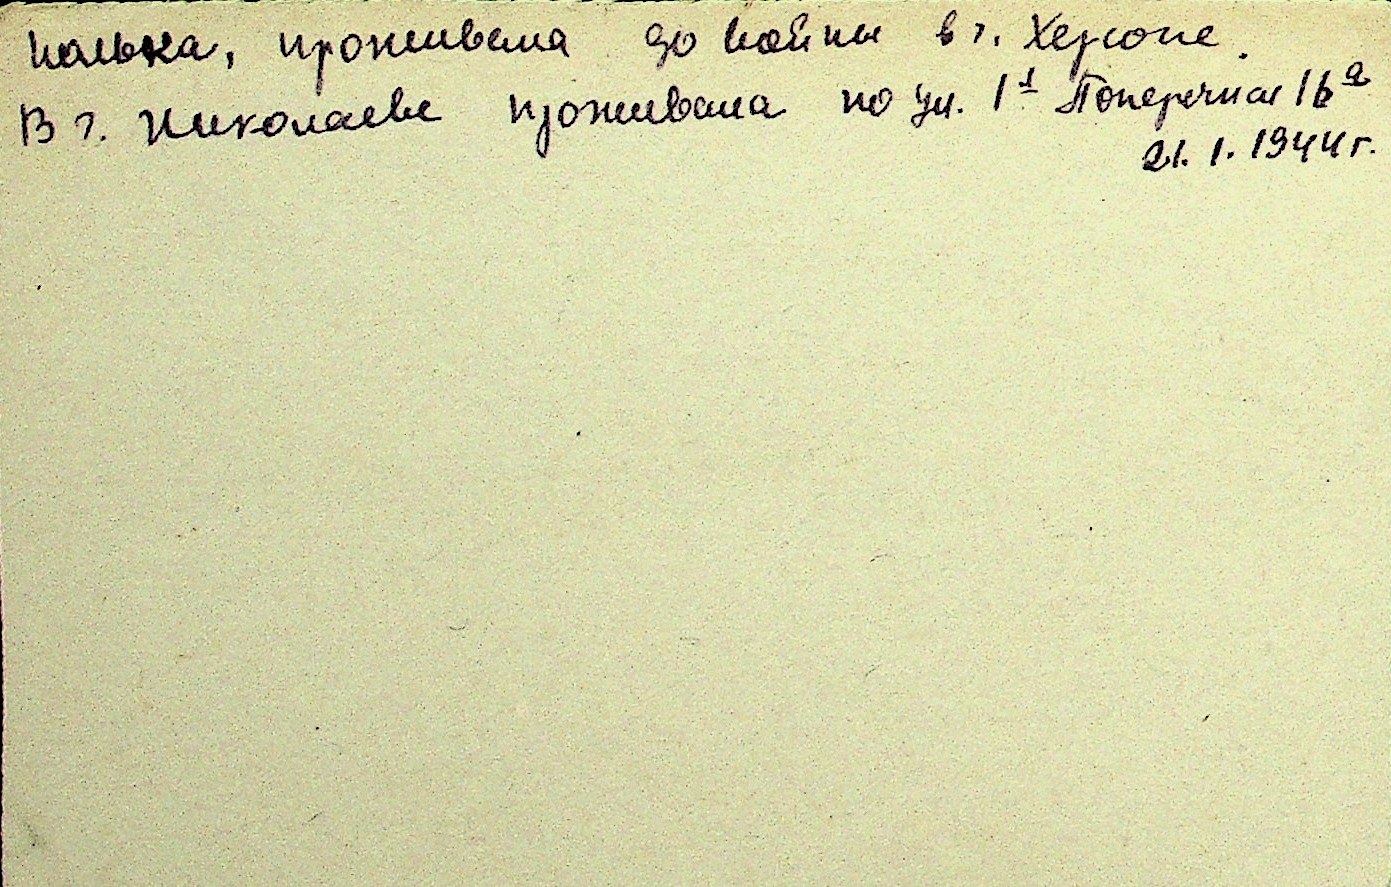 полька, проживала до войны в г. Херсоне.
В г. Николаеве проживала по ул. 1я Поперечная 16а
21. 1. 1944 г.